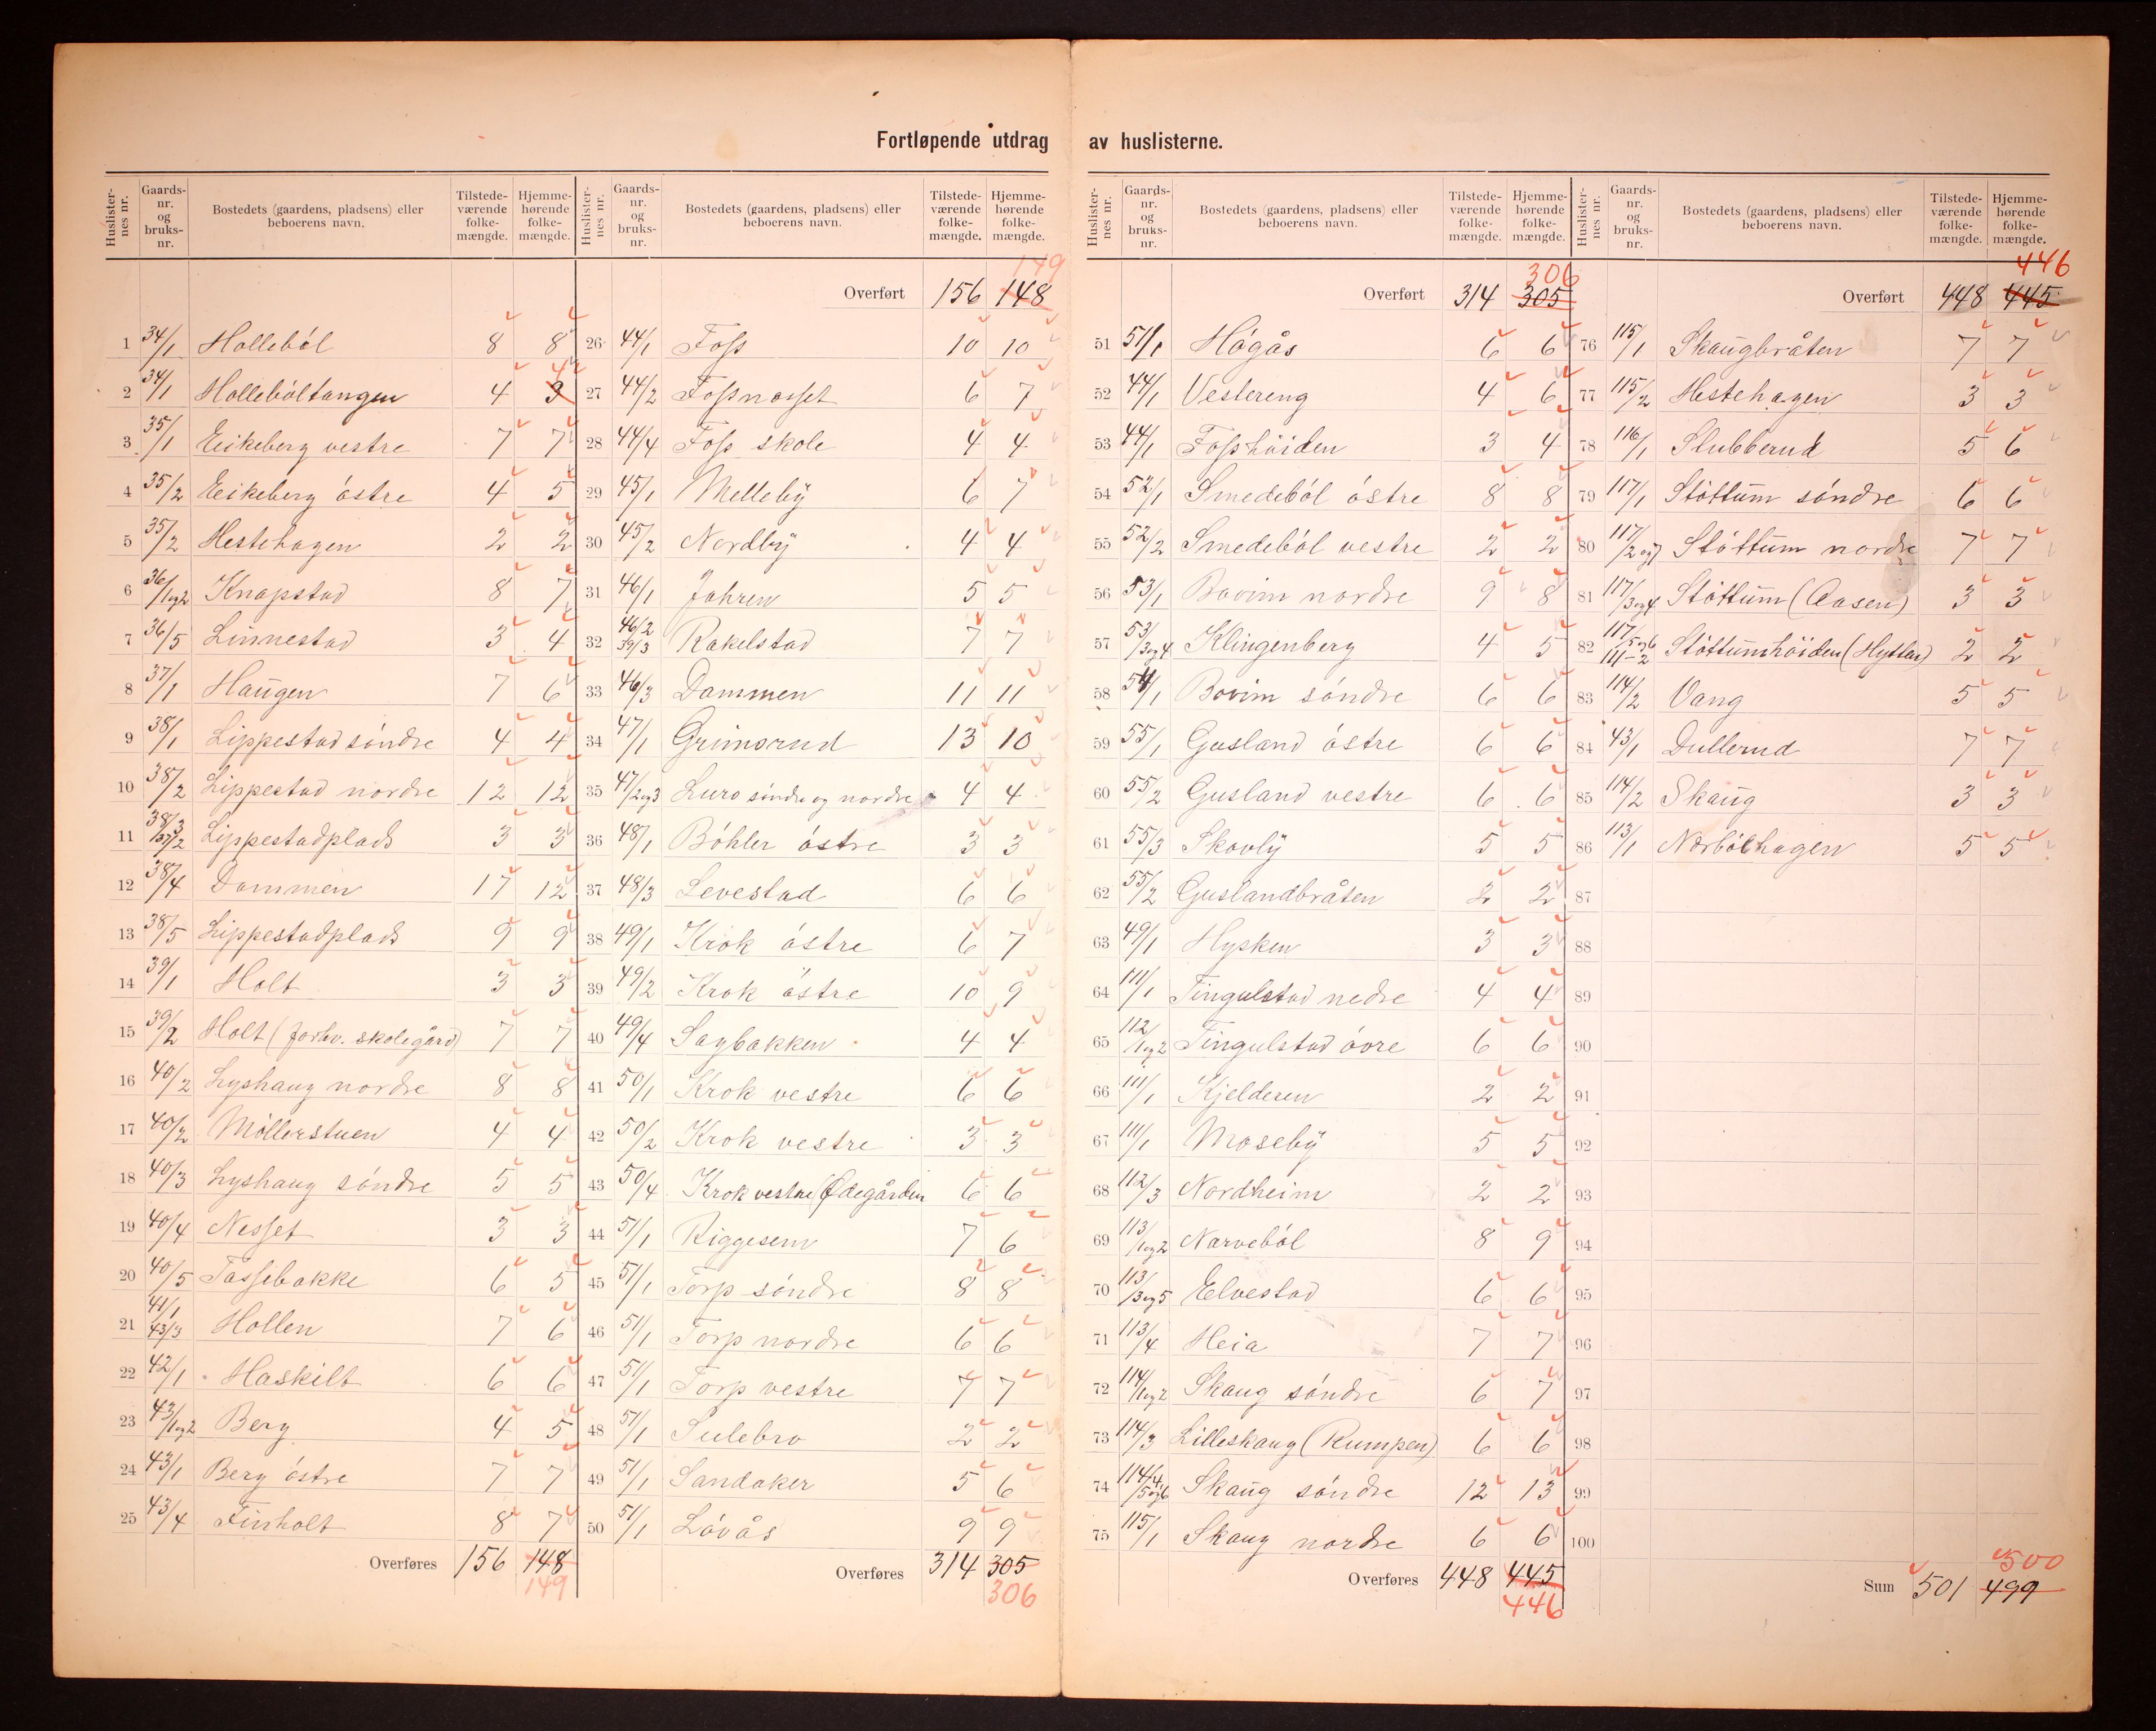 Fortløpende utdrag av huslisterne.
Huslisternes nr. Gaardsnr. og bruksnr. Bostedets (gaardens, pladsens) eller beboerens navn. Tilstedeværende folkemængde. Hjemmehørende folkemængde.
1 34/1 Hollebøl 8 8
2 34/1 Hollebøltangen 4 3 4
3 35/1 Eikeberg vestre 7 7
4 35/2 Eikeberg østre 4 5
5 35/2 Hestehagen 2 2
6 36/1og2 Knapstad 8 7
7 36/5 Linnestad 3 4
8 37/1 Haugen 7 6
9 38/1 Lippestad søndre 4 4
10 38/2 Lippestad nordre 12 12
11 38/3 137/2 Lippestadplads 3 3
12 38/4 Dammen 17 12
13 38/5 Lippestadplads 9 9
14 39/1 Holt 3 3
15 39/2 Holt (forhv. skolegård) 7 7
16 40/2 Lyshaug nordre 8 8
17 40/2 Møllerstuen 4 4
18 40/3 Lyshaug søndre 5 5
19 40/4 Nesset 3 3
20 40/5 Tassebakke 6 5
21 41/1 43/3 Hollen 7 6
22 42/1 Haskilt 6 6
23 43/1og2 Berg 4 5
24 43/1 Berg østre 7 7
25 43/4 Finholt 8 7
Overføres 156 148
149
Huslisternes nr. Gaardsnr. og bruksnr. Bostedets (gaardens, pladsens) eller beboerens navn. Tilstedeværende folkemængde. Hjemmehørende folkemængde.
149
Overført 156 148
26 44/1 Foss 10 10
27 44/2 Fossnesset 6 7
28 44/4 Foss skole 4 4
29 45/1 Melleby 6 7
30 45/2 Nordby 4 4
31 46/1 Jahren 5 5
32 46/2 39/3 Rakelstad 7 7
33 46/3 Dammen 11 11
34 47/1 Grimsrud 13 10
35 47/2og3 Luro søndre og nordre 4 4
36 48/1 Bøhler østre 3 3
37 48/3 Levestad 6 6
38 49/1 Krok østre 6 7
39 49/2 Krok østre 10 9
40 49/4 Sagbakken 4 4
41 50/1 Krok vestre 6 6
42 50/2 Krok vestre 3 3
43 50/4 Krok vestre (Ødegården 6 6
44 51/1 Riggesem 7 6
45 51/1 Torp søndre 8 8
46 51/1 Torp nordre 6 6
47 51/1 Torp vestre 7 7
48 51/1 Sulebro 2 2
49 51/1 Sandaker 5 6
50 51/1 Løvås 9 9
Overføres 314 305
306
Huslisternes nr. Gaardsnr. og bruksnr. Bostedets (gaardens, pladsens) eller beboerens navn. Tilstedeværende folkemængde. Hjemmehørende folkemængde.
306
Overført 314 305
51 51/1 Høgås 6 6
52 44/1 Vestereng 4 6
53 44/1 Fosshøiden 3 4
54 52/1 Smedebøl østre 8 8
55 52/2 Smedebøl vestre 2 2
56 53/1 Bovim nordre 9 8
57 53/3og4 Klingenberg 4 5
58 54/1 Bovim søndre 6 6
59 55/1 Gusland østre 6 6
60 55/2 Gusland vestre 6 6
61 55/3 Skovly 5 5
62 55/2 Guslandbråten 2 2
63 49/1 Hysken 3 3
64 111/1 Tingulstad nedre 4 4
65 112/1og2 Tingulstad øvre 6 6
66 111/1 Kjelderen 2 2
67 111/1 Moseby 5 5
68 112/3 Nordheim 2 2
69 113/1og2 Narvebøl 8 9
70 113/3og5 Elvestad 6 6
71 113/4 Heia 7 7
72 114/1og2 Skaug søndre 6 7
73 114/3 Lilleskaug (Rumpen) 6 6
74 114/4, 5og6 Skaug søndre 12 13
75 115/1 Skaug nordre 6 6
Overføres 448 445
446
Huslisternes nr. Gaardsnr. og bruksnr. Bostedets (gaardens, pladsens) eller beboerens navn. Tilstedeværende folkemængde. Hjemmehørende folkemængde.
446
Overført 448 445
76 115/1 Skaugbråten 7 7
77 115/2 Hestehagen 3 3
78 116/1 Slubberud 5 6
79 117/1 Støttum søndre 6 6
80 117/2og7 Støttum nordre 7 7
81 117/3og4 Støttum (Aasen) 3 3
82 117/5og6 111-2 Støttumhøiden (Hytten) 2 2
83 114/2 Vang 5 5
84 43/1 Dullerud 7 7
85 114/2 Skaug 3 3
86 113/1 Nærbølhagen 5 5
87
88
89
90
91
92
93
94
95
96
97
98
99
100
500
Sum 501 499